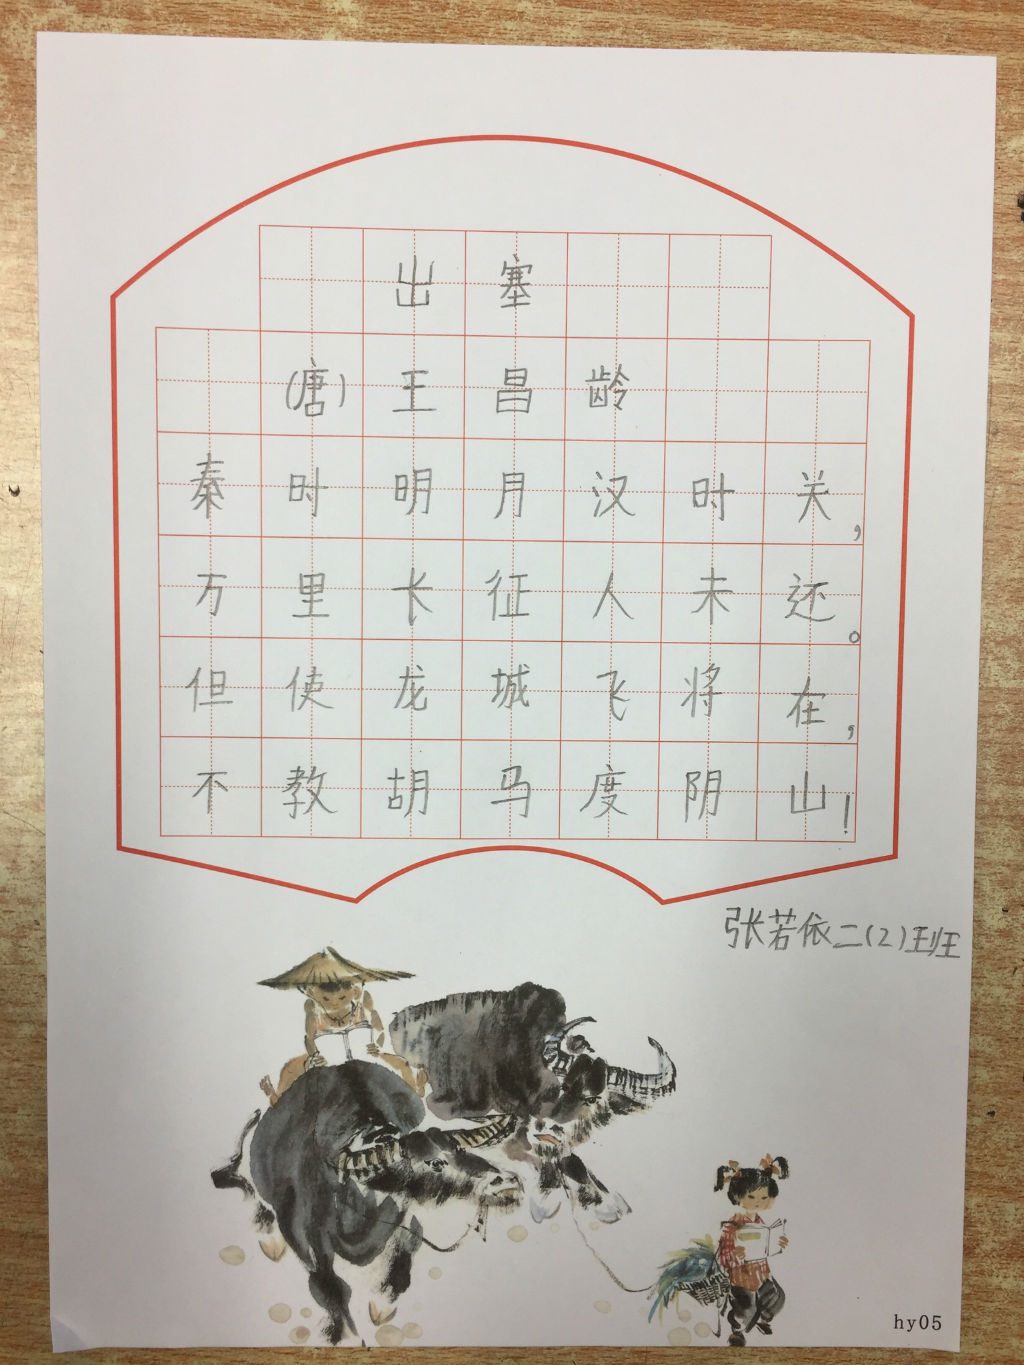 出塞
(唐)王昌龄
秦时明月汉时关,
万里长征人未还。
但使龙城飞将在,
不教胡马度阴山!
张若依二(2)班
hy05